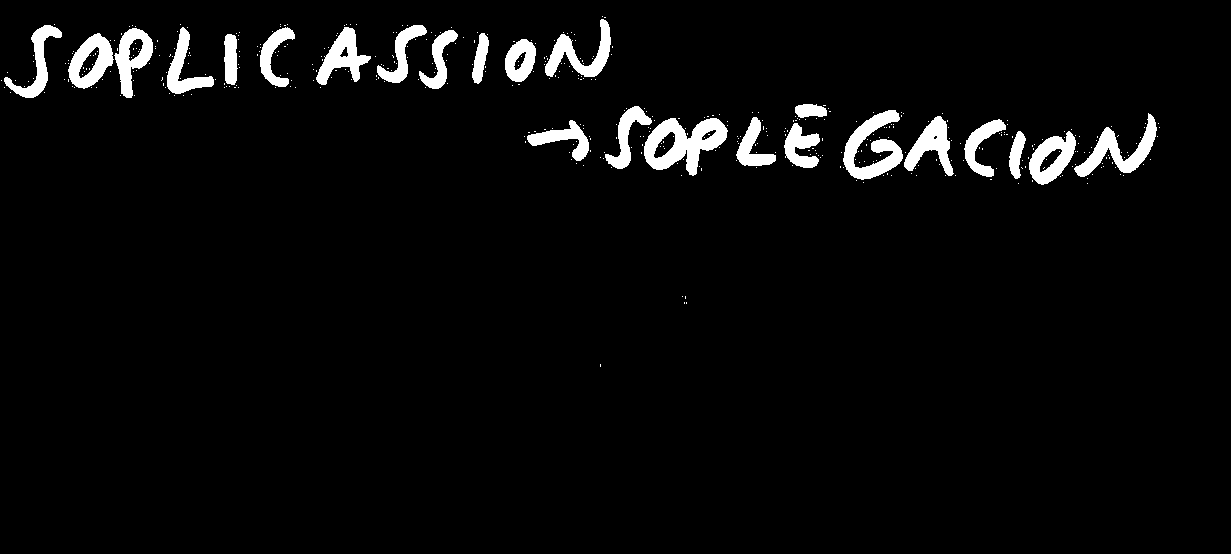 SOPLICASSION
→SOPLEGACION